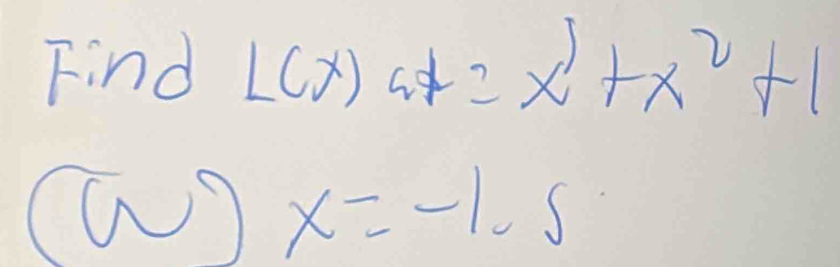 Find L(x) at = x³ + x² + 1
(a) x = -1.5